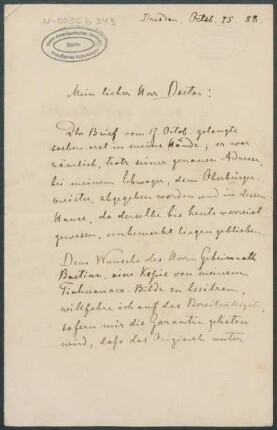 N-0035 b 249
Ibero-Amerikanisches Institut
Berlin
Preußischer Kulturbesitz
Dresden, Octob. 25 88
Mein lieber Herr Doctor!
Ihr Brief vom 17 Octob. gelangte
soeben erst in meine Hände; er war
nämlich, trotz seiner genauen Adresse,
bei meinem Schwager, dem Oberbürger-
meister, abgegeben worden und in dessen
Hause, da derselbe bis heut verreist
gewesen, unbemerkt liegen geblieben.
Dem Wunsche des Herrn Geheimrath
Bastian, eine Kopie von meinem
Tiahuanaco-Bilde zu besitzen,
willfahre ich auf das Bereitwilligste,
sofern mir die Garantie geboten
wird, daß das Original unter